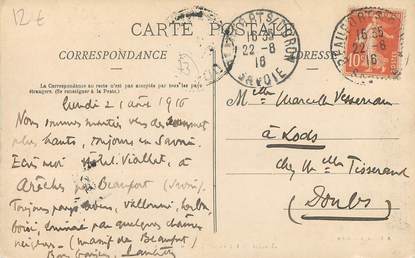 12 €
CARTE POSTALE
CORRESPONDANCE
ADRESSE
BEAUFORT-S/-DORON
16 35
22-8
16
SAVOIE
16 35
22-8
16
10
La Correspondance au recto n'est pas acceptée par tous les pays
étrangers. (Se renseigner à la Poste.)
Lundi 21 août 1916
Nous sommes montés vers des
plus hauts, toujours en Savoie.
Ecris moi Hotel Viallet, à
Arêches par Beaufort (Savoie).
Toujours pays,
boisé, dominé par quelques chaînes
neigeuses - (massif de Beaufort)
Bons baisers.
Melle Marcelle
à Lods
chez Melle Tisserand
(Doubs)